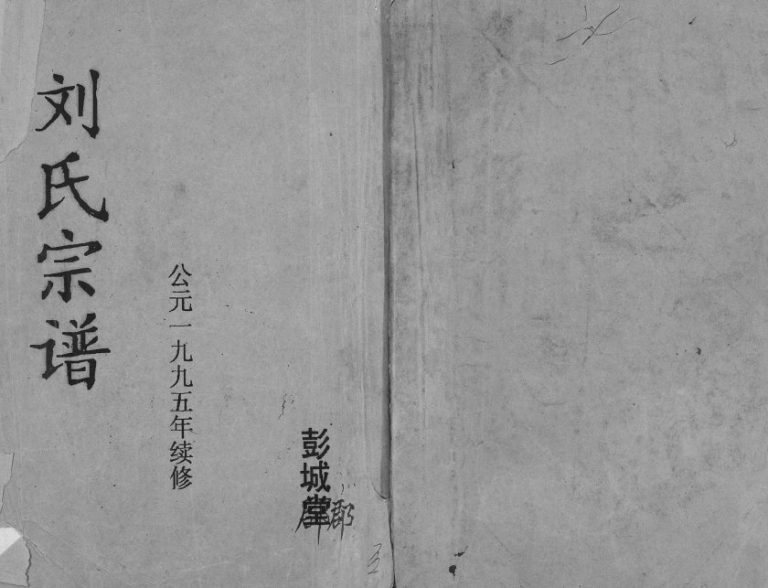 刘氏宗谱
公元一九九五年续修
彭城堂
郡